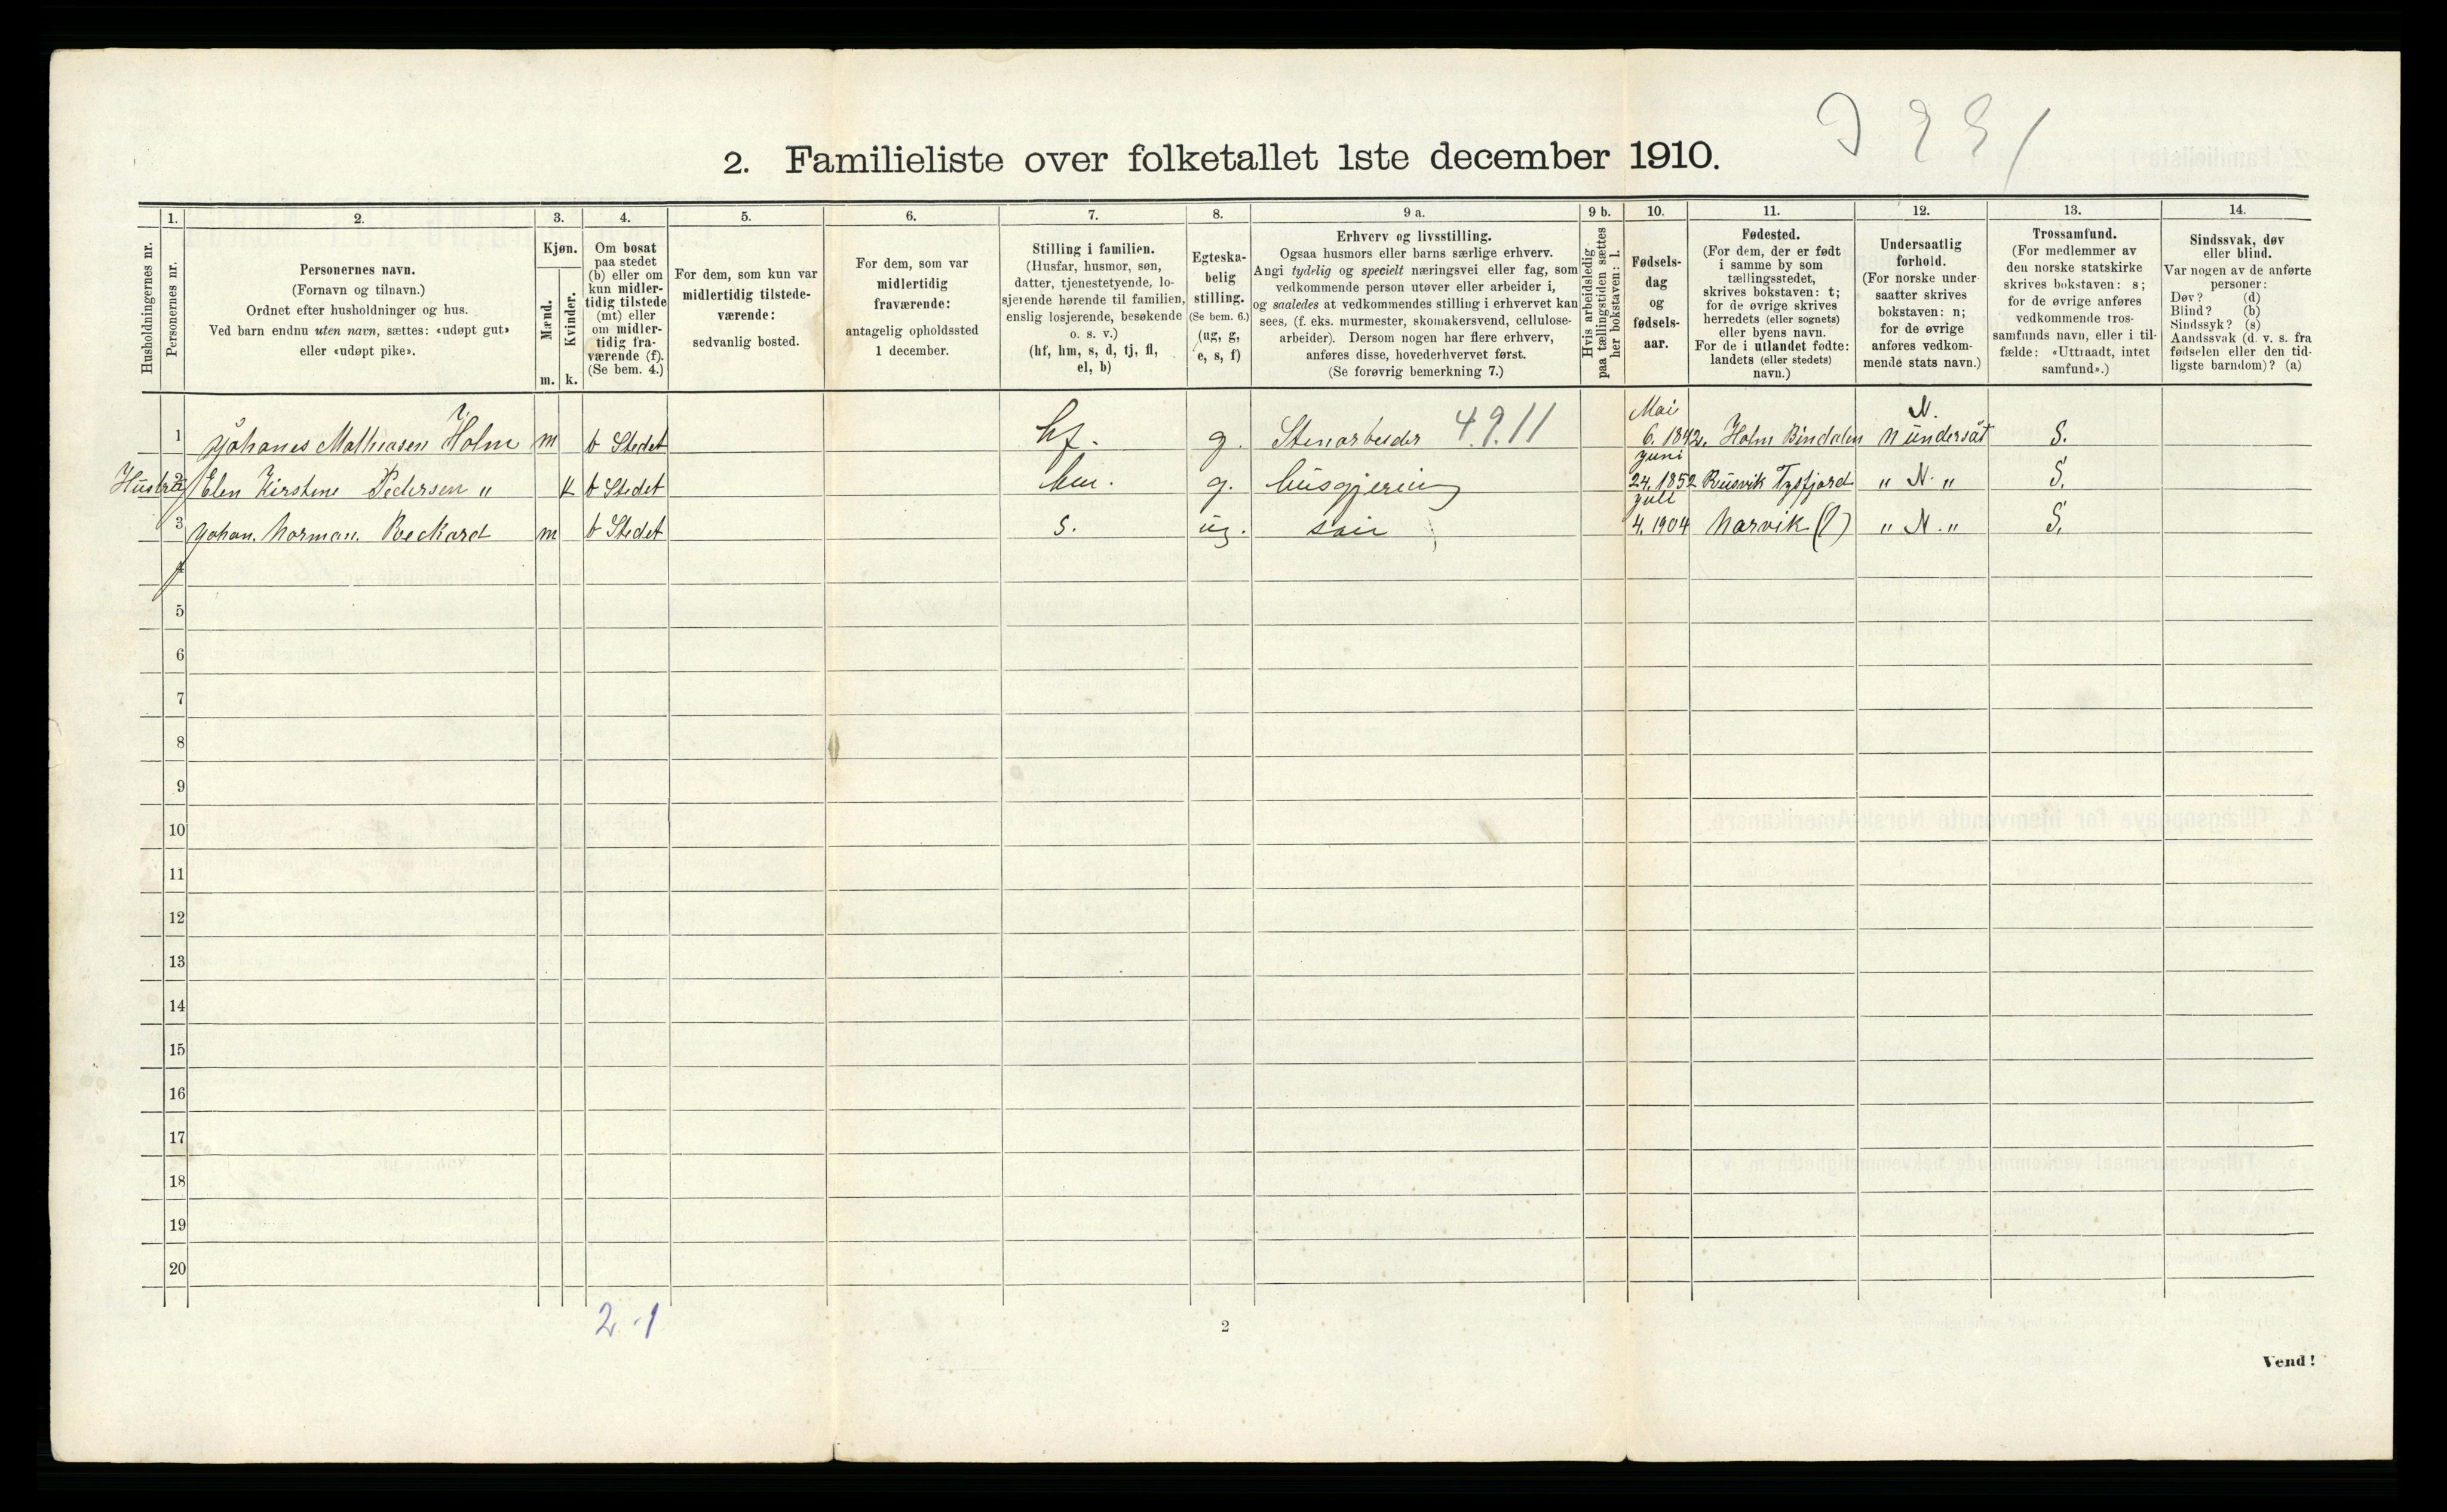 2. Familieliste over folketallet 1ste december 1910.
Husholdningernes nr.
1.
Personernes nr.
2.
Personernes navn.
(Fornavn og tilnavn.)
Ordnet efter husholdninger og hus.
Ved barn endnu uten navn, sættes: «udøpt gut»
eller «udøpt pike».
3.
Kjøn.
Mænd.
Kvinder.
m. k.
4.
Om bosat
paa stedet
(b) eller om
kun midler-
tidig tilstede
(mt) eller
om midler-
tidig fra-
værende (f).
(Se bem. 4.)
5.
For dem, som kun var
midlertidig tilstede-
værende:
sedvanlig bosted.
6.
For dem, som var
midlertidig
fraværende:
antagelig opholdssted
1 december.
7.
Stilling i familien.
(Husfar, husmor, søn,
datter, tjenestetyende, lo-
sjerende hørende til familien,
enslig losjerende, besøkende
o. s. v.)
(hf, hm, s, d, tj, fl,
el, b)
8.
Egteska-
belig
stilling.
(Se bem. 6.)
(ug, g,
e, s, f)
9 a.
Erhverv og livsstilling.
Ogsaa husmors eller barns særlige erhverv.
Angi tydelig og specielt næringsvei eller fag, som
vedkommende person utøver eller arbeider i,
og saaledes at vedkommendes stilling i erhvervet kan
sees, (f. eks. murmester, skomakersvend, cellulose-
arbeider). Dersom nogen har flere erhverv,
anføres disse, hovederhvervet først.
(Se forøvrig bemerkning 7.)
9 b.
Hvis arbeidsledig
paa tællingstiden sættes
her bokstaven: l.
10.
Fødsels-
dag
og
fødsels-
aar.
11.
Fødested.
(For dem, der er født
i samme by som
tællingsstedet,
skrives bokstaven: t;
for de øvrige skrives
herredets (eller sognets)
eller byens navn.
For de i utlandet fødte:
landets (eller stedets)
navn.)
12.
Undersaatlig
forhold.
(For norske under-
saatter skrives
bokstaven: n;
for de øvrige
anføres vedkom-
mende stats navn.)
13.
Trossamfund.
(For medlemmer av
den norske statskirke
skrives bokstaven: s;
for de øvrige anføres
vedkommende tros-
samfunds navn, eller i til-
fælde: «Uttraadt, intet
samfund».)
14.
Sindssvak, døv
eller blind.
Var nogen av de anførte
personer:
Døv? (d)
Blind? (b)
Sindssyk? (s)
Aandssvak (d. v. s. fra
fødselen eller den tid-
ligste barndom)? (a)
1 Johanes Mathiasen Holm m b Stedet hf. g. Stenarbeider 4.9.11 Mai 6. 1842. Holm Bindalen N. n undersåt S.
Hustru 2 Elen Kirstine Pedersen " K b Stedet hm. g. husgjerning Juni 24. 1852 Rusvik Tysfjord " N. " S.
3 Johan. Norman. Reckard m b Stedet s. ug. søn Juli 4. 1904 Narvik (t) " N. " S.
4
5
6
7
8
9
10
11
12
13
14
15
16
17
18
19
20
2-1
2
Vend!